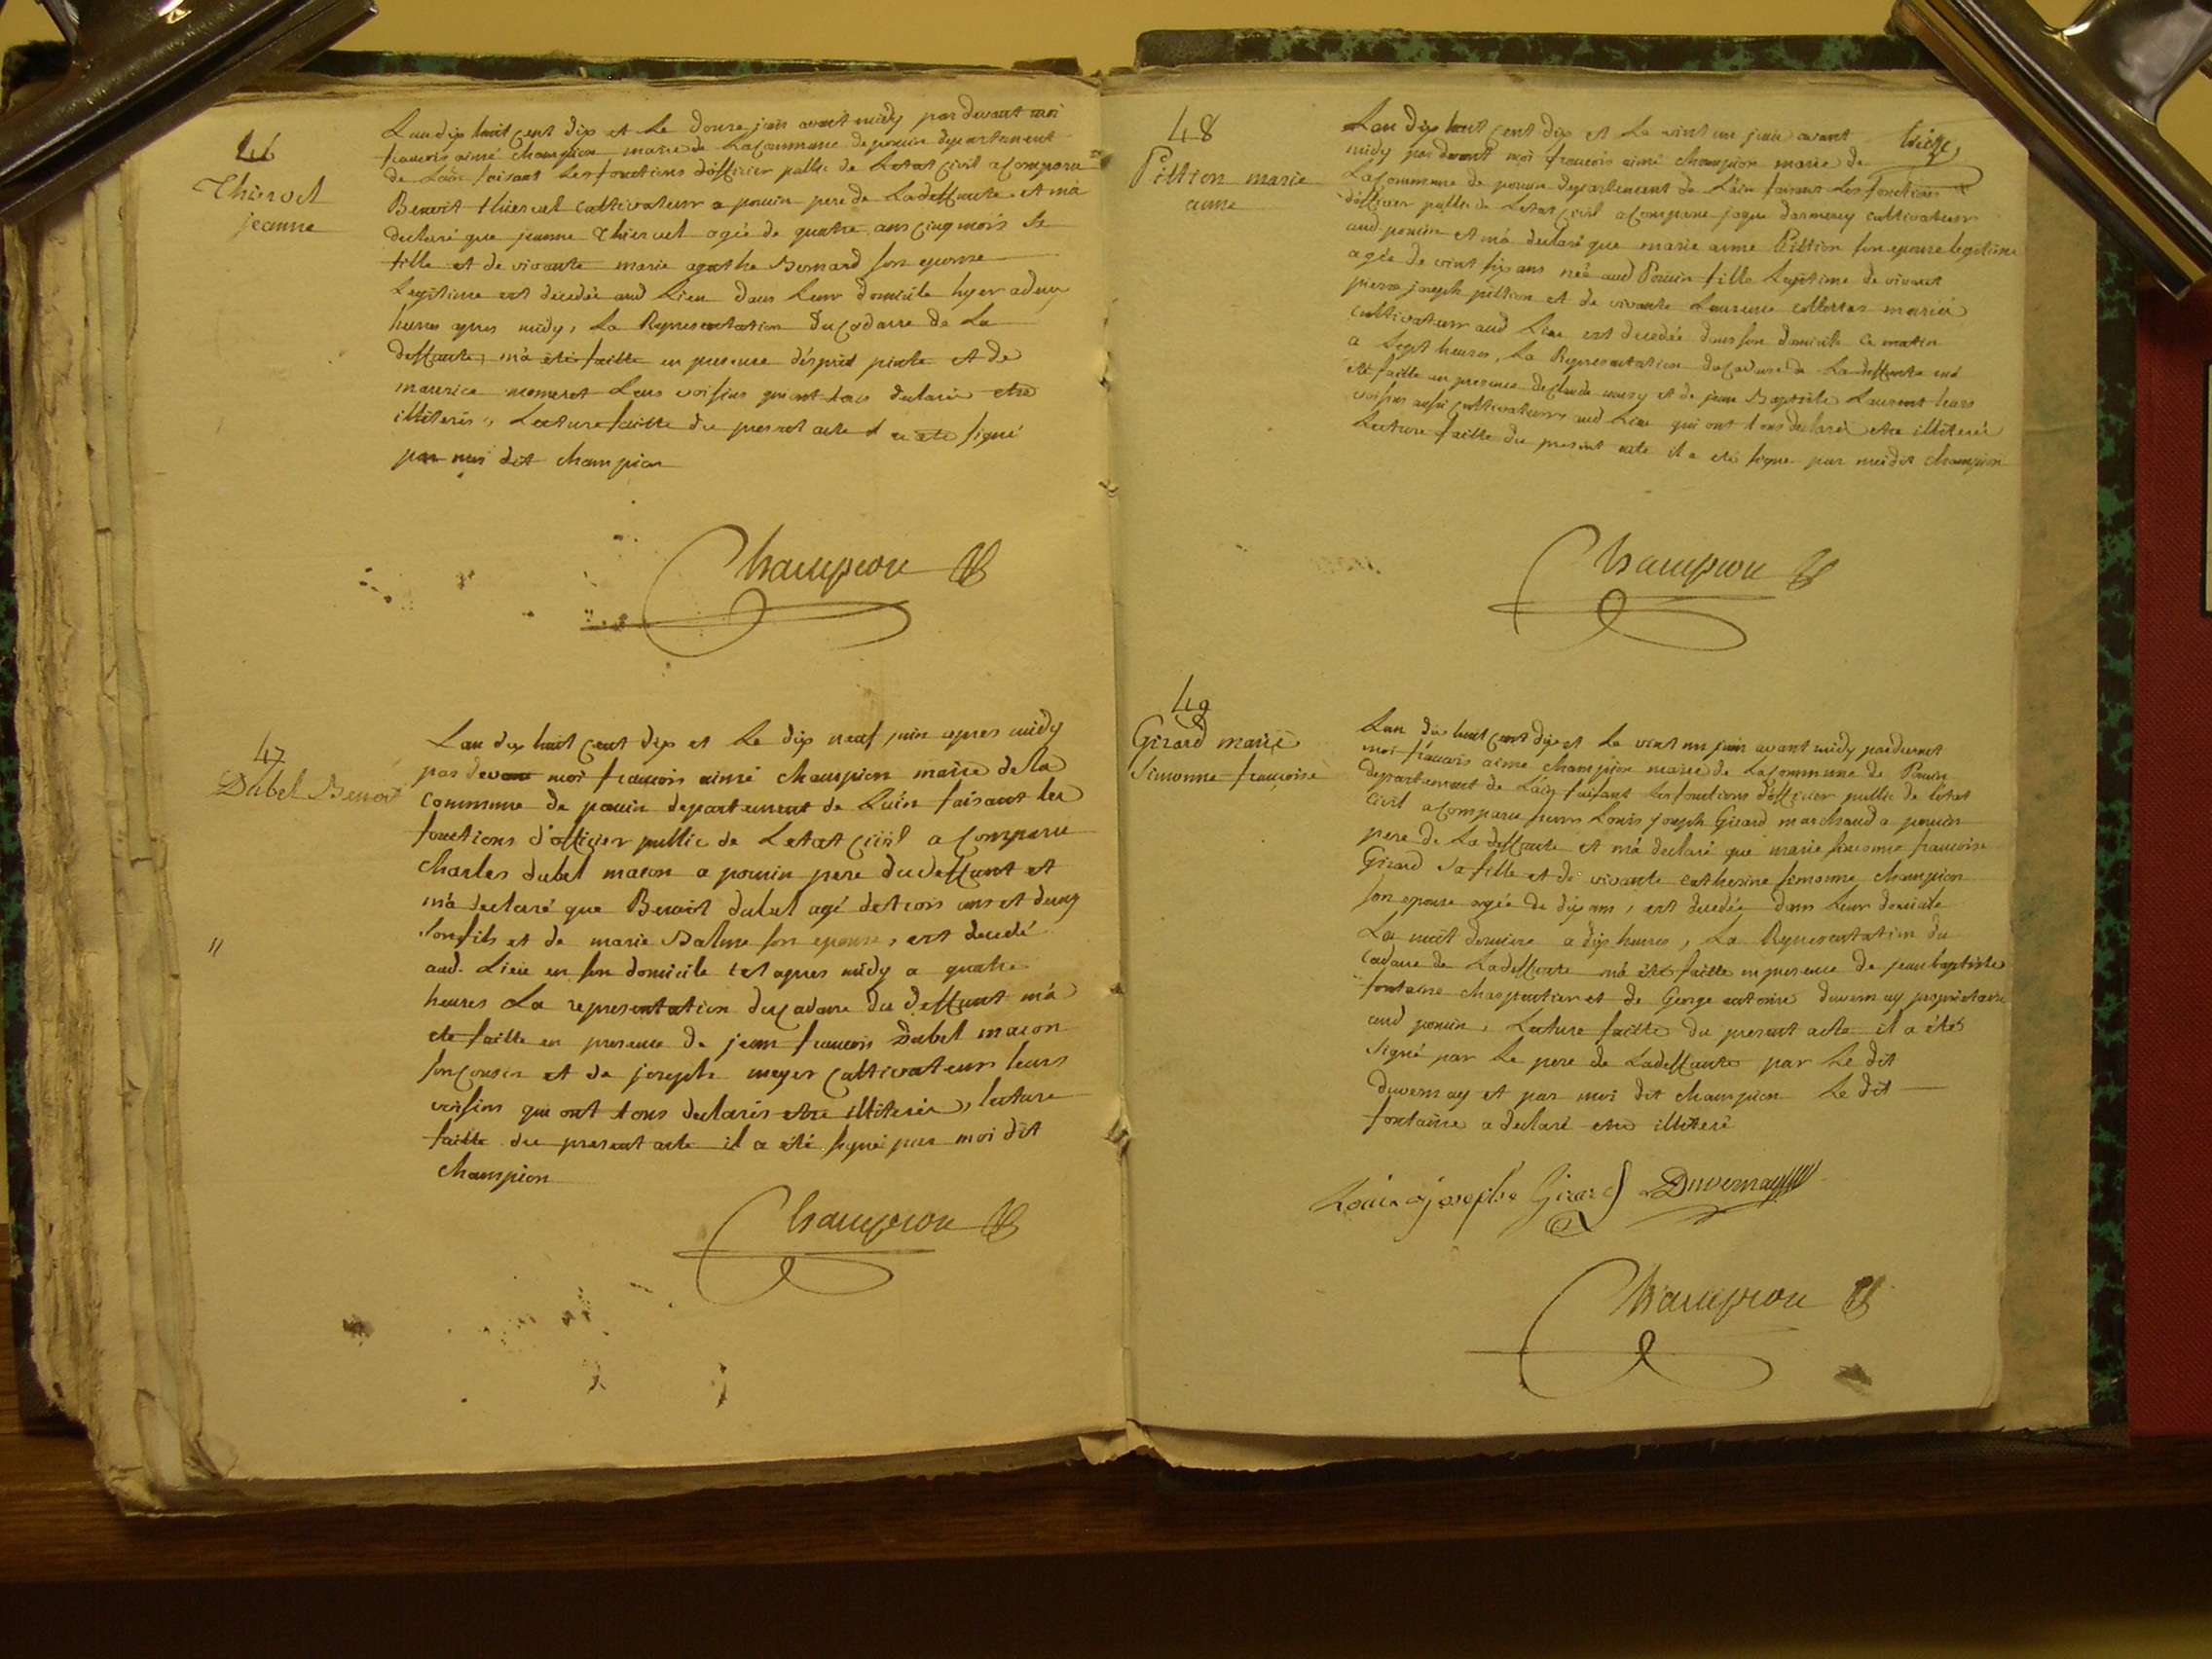 46
Thiervet
jeanne
L'an dix huit cent dix et le douze juin avant midy par devant moi
françois aimé champion maire de la commune de poncin departement
de L'ain faisant les fonctions d'officier public de L'etat civil a comparu
Benoit thiervet cultivateur a poncin pere de la deffunte et m'a
declaré que jeanne Thiervet agée de quatre ans cinq mois sa
fille et de vivante marie agathe Bernard son epouse
Legitime est decedée aud Lieu dans leur domicile hyer a deux
heures apres midy, La Representation du cadavre de La
deffunte, m'a été faitte en presence d'esprit et de
maurice Leurs voisins qui ont tous declaré etre
illiterés, Lecture faitte du present acte il a été signé
par moi dit champion
Champion
47
Dubel Benoit
L'an dix huit cent dix et le dix neuf juin apres midy
par devant moi françois aimé champion maire de la
commune de poncin departement de L'ain faisant les
fonctions d'officier public de L'etat civil a comparu
charles dubel macon a poncin pere du deffunt et
m'a declaré que Benoit dubel agé de trois ans et demy
son fils et de marie Balme son epouse, est decedé
aud. Lieu en son domicile cet apres midy a quatre
heures La representation du cadavre du deffunt m'a
eté faitte en presence de jean françois Dubel macon
son cousin et de joseph meyer cultivateurs leurs
voisins qui ont tous declarés etre illiterés, lecture
faitte du present acte il a été signé par moi dit
champion
Champion
"
48
Piltion marie
anne
treize
L'an dix huit cent dix et Le vint un juin avant
midy par devant moi françois aimé champion maire de
La commune de poncin departement de L'ain faisant Les fonctions
d'officier public de Letat civil a comparu jaque darmency cultivateur
aud. poncin et m'a declaré que marie anne Piltion son epouse legitime
agée de vint six ans née aud Poncin fille Legitime de vivant
pierre joseph piltion et de vivante Laurence mariés
cultivateurs aud Lieu est decedée dans son domicile ce matin
a sept heures, La Representation du cadavre de La deffunte
été faitte en presence de claude et de jean Baptiste Laurent leurs
voisins aussi cultivateurs aud Lieu qui ont tous declaré etre illiteré
Lecture faitte du present acte il a eté signé par moi dit champion
Champion
49
Girard marie
Simonne françoise
L'an dix huit cent dix et Le vint un juin avant midy par devant
moi françois aimé champion maire de La commune de Poncin
departement de L'ain faisant les fonctions d'officier public de l'etat
civil a comparu sieur Louis joseph Girard marchand a poncin
pere de La deffunte et m'a declaré que marie simonne françoise
Girard sa fille et de vivante catherine simonne champion
son epouse agée de dix ans, est decedée dans Leur domicile
La nuit derniere a dix heures, La Representation du
cadavre de La deffunte m'a été faitte en presence de jean baptiste
fontaine charpentier et de George antoine duvernay proprietaire
aud poncin, Lecture faitte du present acte il a été
signé par Le pere de La deffunte par Le dit
duvernay et par moi dit champion Le dit
fontaine a declaré etre illiteré
Louis joseph Girard Duvernay
Champion